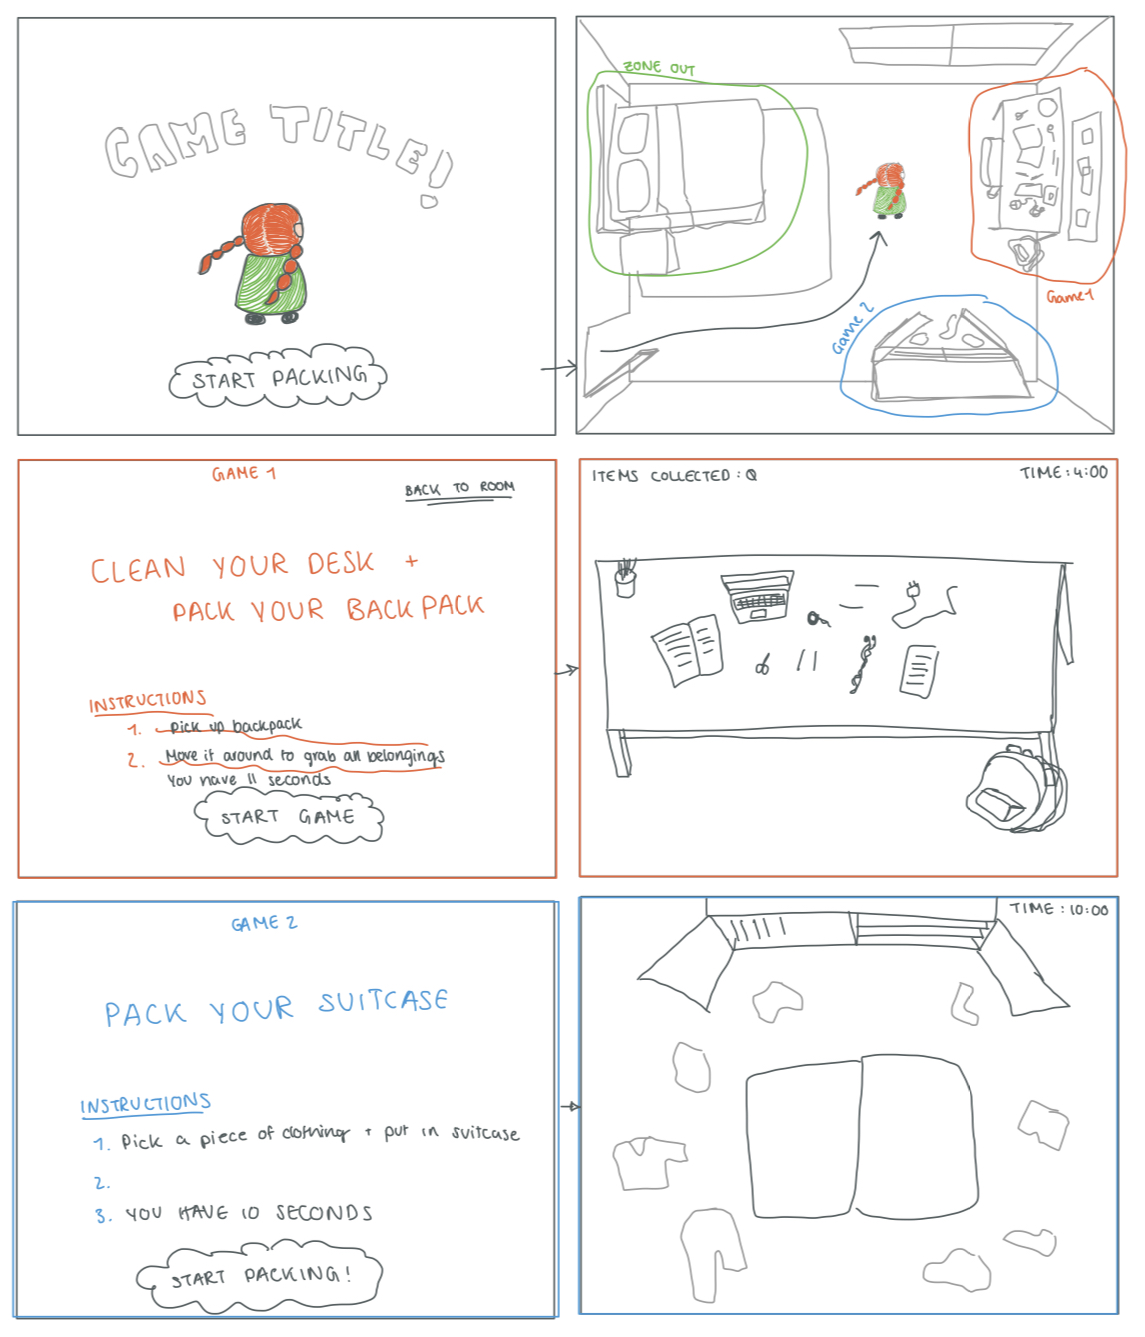 GAME TITLE!
START PACKING
ZONE OUT
Game 1
Game 2
GAME 1
BACK TO ROOM
CLEAN YOUR DESK +
PACK YOUR BACKPACK
INSTRUCTIONS
1. Pick up backpack
2. Move it around to grab all belongings
You have 11 seconds
START GAME
ITEMS COLLECTED: 0
TIME: 4:00
GAME 2
PACK YOUR SUITCASE
INSTRUCTIONS
1. Pick a piece of clothing + put in suitcase
2.
3. YOU HAVE 10 SECONDS
START PACKING!
TIME: 10:00